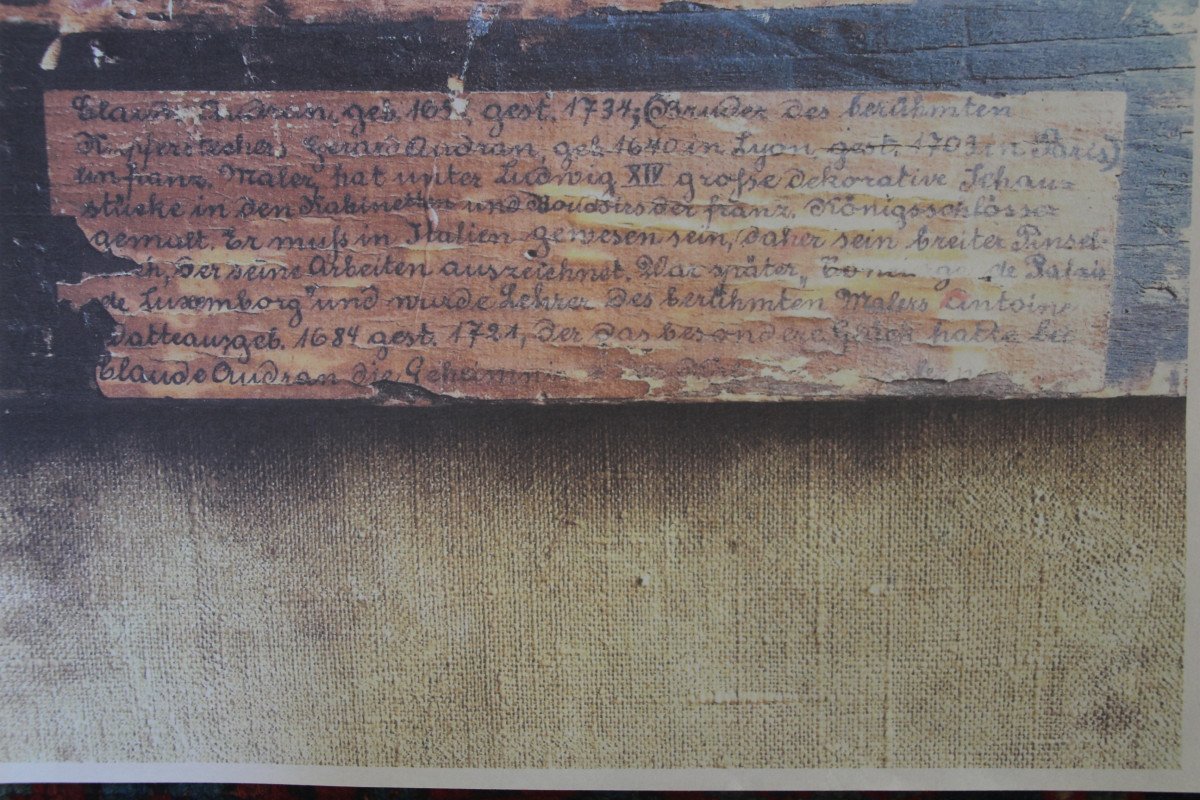 Claude Audran, geb. 165 , gest. 1734; (Bruder des berühmten
Kupferstechers Gerard Audran, geb 1640 in Lyon gest. 1703 in Paris)
ein franz. Maler, hat unter Ludwig XIV große dekorative Schau=
stücke in den Kabinetten und Boudoirs der franz. Königsschlösser
gemalt. Er muß in Italien gewesen sein, daher sein breiter Pinsel-
ch, der seine Arbeiten auszeichnet. War später, de Palais
de Luxemborg" und wurde Lehrer des berühmten Malers Antoine
Watteau geb. 1684 gest. 1721, der das besondere Glück hatte bei
Claude Audran die